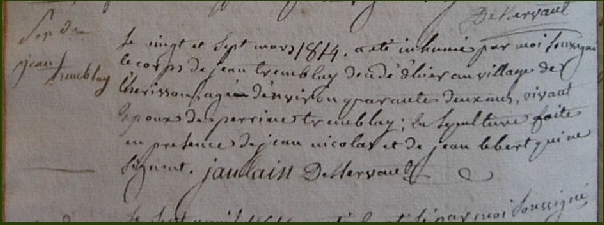 DeKervault
Sep de
jean
tremblay
Le vingt et sept mars 1814, a été inhumé par moi soussigné
le corps de jean tremblay décédé d'hier au village de
L'herisson, agé d'environ quarante deux ans, vivant
Epoux de perrine tremblay; la sepulture faite
en presence de jean nicolas et de jean lebert qui ne
signent. 
Le sept par moi soussigné